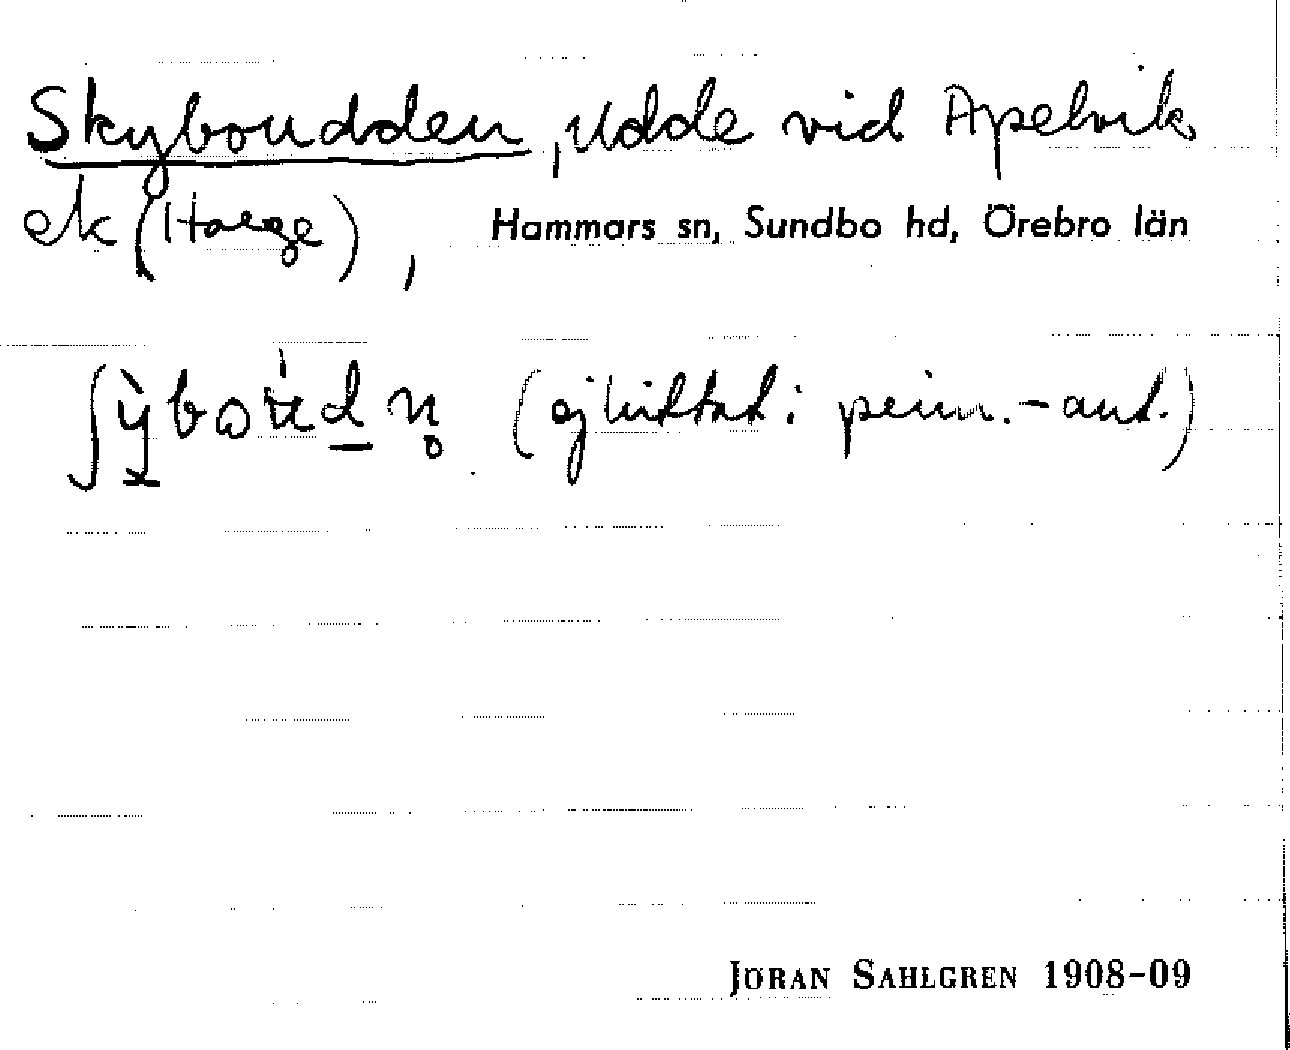 Skyboudden, Udde vid Apelvik
ek (Harge), Hammars sn, Sundbo hd, Örebro län
(ej hittat i penn.-ant.)
JÖRAN SAHLGREN 1908-09